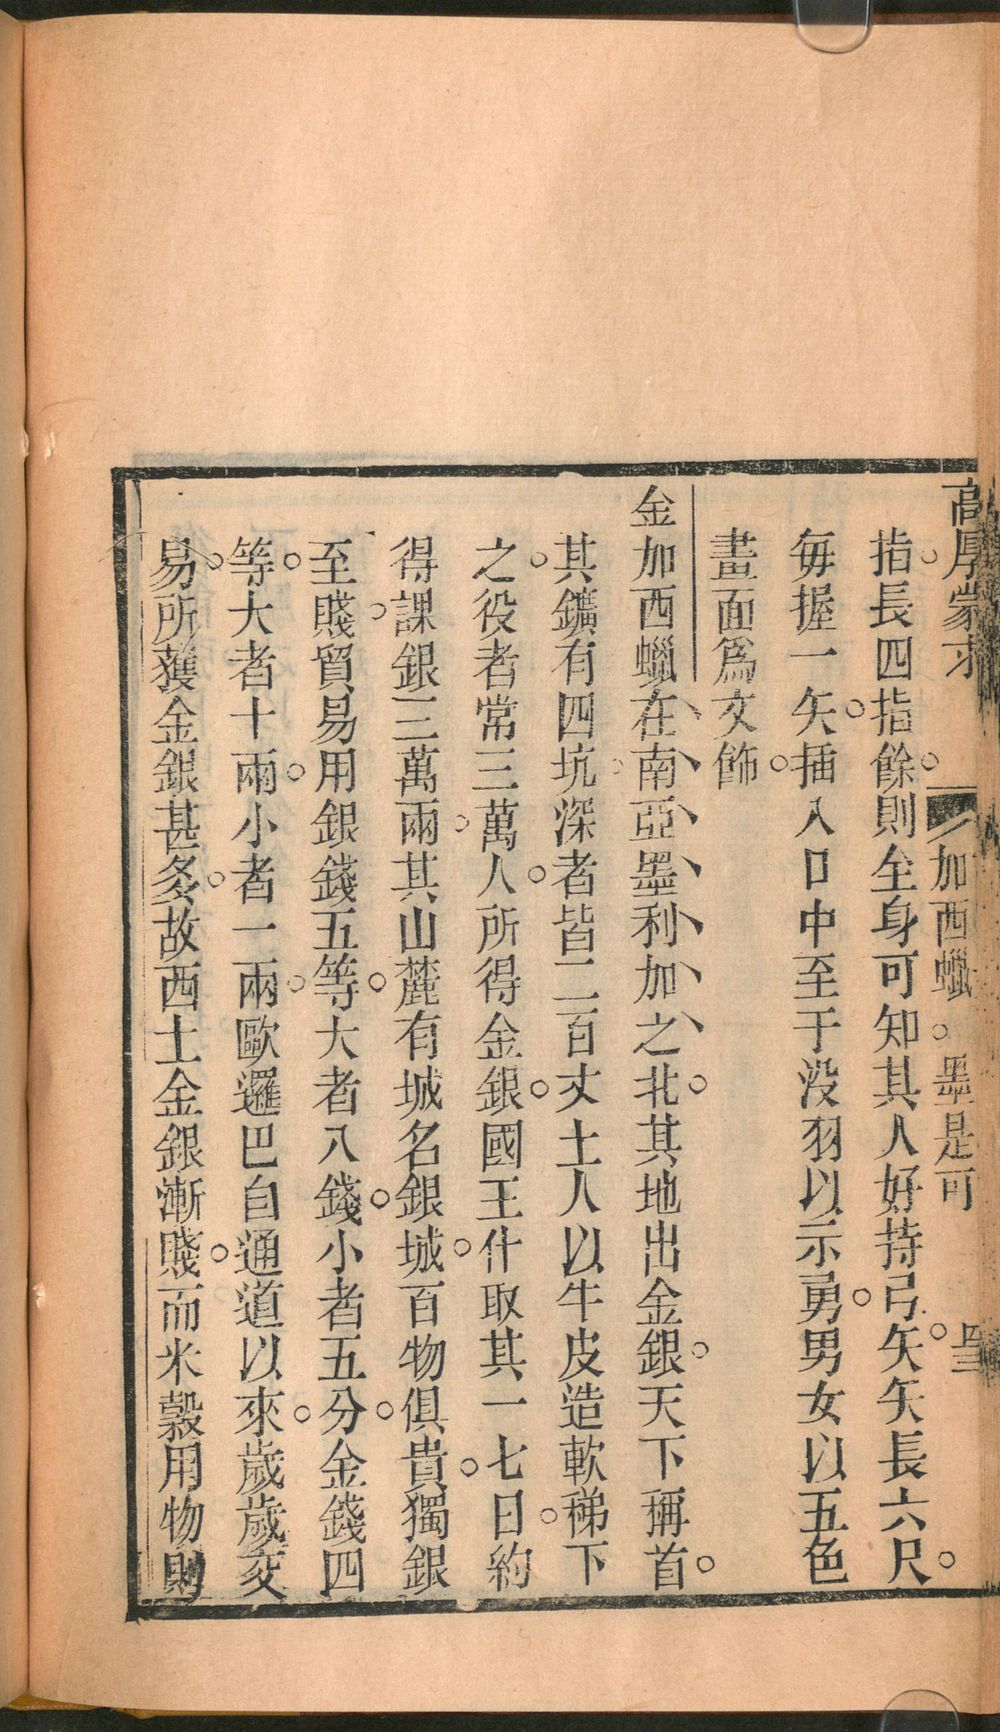 高厚蒙求 加西蠟。墨是可 四三
指長四指餘。則全身可知。其人好持弓矢。矢長六尺。
每握一矢。插入口中至于沒羽以示勇。男女以五色
畫面爲文飾。
金加西蠟在南亞墨利加之北。其地出金銀。天下稱首。
其鑛有四坑。深者皆二百丈。土人以牛皮造軟梯下
之。役者常三萬人。所得金銀。國王什取其一。七日約
得課銀三萬兩。其山麓有城名銀城。百物俱貴。獨銀
至賤。貿易用銀錢五等。大者八錢。小者五分。金錢四
等。大者十兩。小者一兩。歐邏巴自通道以來。歲歲交
易。所獲金銀甚多。故西土金銀漸賤。而米穀用物則